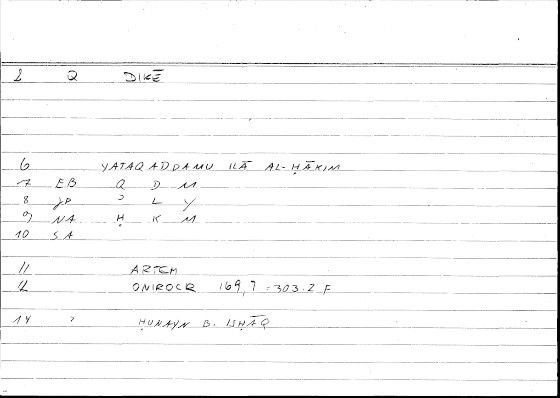 1 Q DIKĒ
6 YATAQADDAMU ILĀ AL-ḤĀKIM
7 EB Q D M
8 JP ʾ L Y
9 NA Ḥ K M
10 SA
11 ARTEM
12 ONIROCR 169,7 = 303.2 F
14 ? ḤUNAYN B. ISḤĀQ